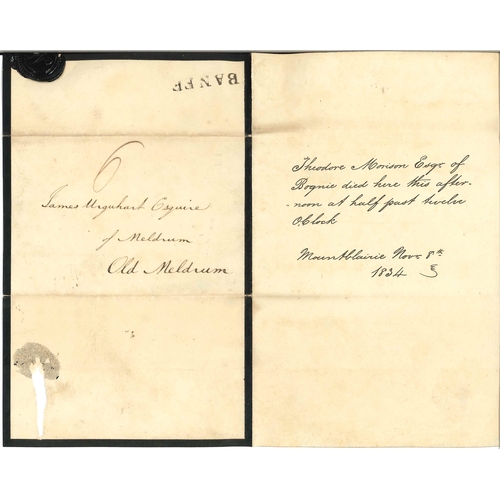 BANFF
6
James Urquhart Esquire
of Meldrum
Old Meldrum
Theodore Morison Esqr of
Bognie died here this after-
-noon at half past twelve
OClock
Mountblairie Novr 8th
1834